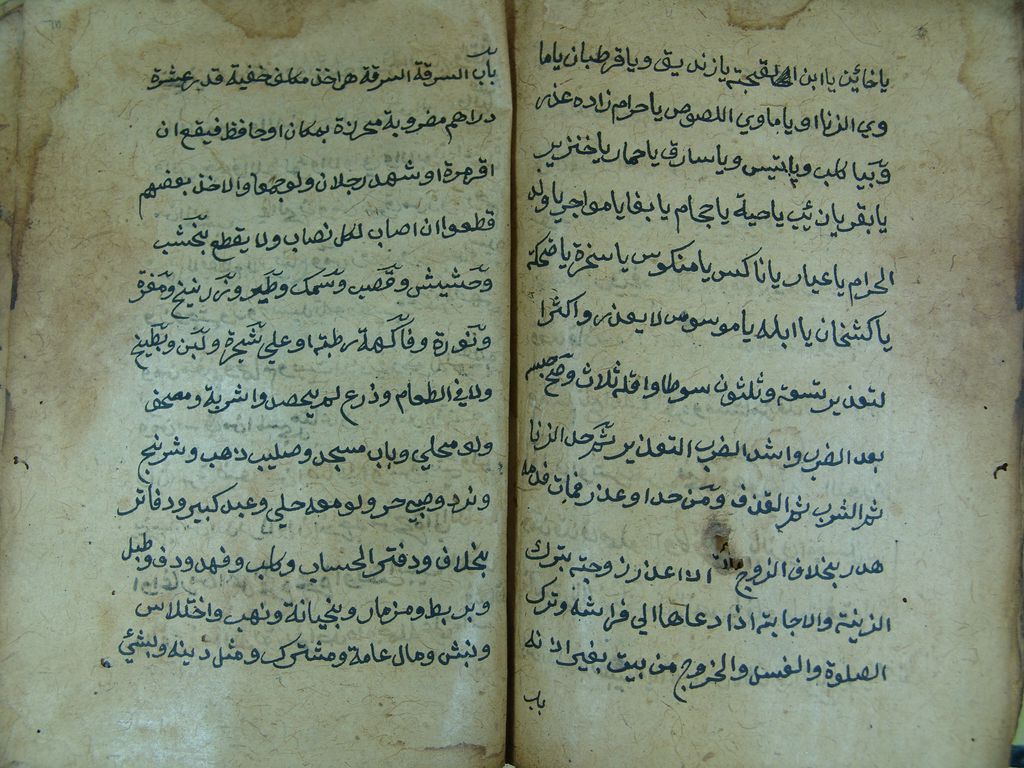 يا خائن يا ابن القحبة يا زنديق ويا قرطبان يا ما
وي الزنا او يا ماوي اللصوص يا حرام زاده عذر
وبيا كلب ويا تيس ويا سارق يا حمار يا خنزير
يا بقر يا ذئب يا حية يا حجام يا بغا يا مواجر يا ولد
الحرام يا عيار يا ناكس يا منكوس يا سخرة يا ضحكة
يا كشخان يا ابله يا موسوس لا يعذر واكثر ا
لتعذير تسعة وثلثون سوطا واقله ثلاث وصح حبسه
بعد الضرب واشد الضرب التعذير ثم حد الزنا
ثم الشرب ثم القذف ومن حد او عذر فمات فدمه
هدر بخلاف الزوج اذا عذر زوجته بترك
الزينة والاجابة اذا دعاها الي فراشه وترك
الصلوة والغسل والخروج من بيت بغير الاذنه
باب
باب السرقة السرقة هو اخذ مكلف خفية قدر عشرة
دراهم مضروبة محرزة بمكان او حافظ فيقع ان
اقر مرة او شهد رجلان ولو جمعا والاخذ بعضهم
قطعوا ان اصاب لكل نصاب ولا يقطع بخشب
وحشيش وقصب وسمك وطير وزرنيخ ومغرة
ونورة وفاكهة رطبة او علي شجرة ولبن وبطيخ
ولا في الطعام وزرع لم يحصد واشربة ومصحف
ولو محلي وباب مسجد وصليب ذهب وشرنج
ونرد وصبي حر ولو معه حلي وعبد كبير ودفاتر
بخلاف ودفتر الحساب وكلب وفهد ودف وطبل
وبربط ومزمار وبخيانة ونهب واختلاس
ونبش ومال عامة ومشترك ومثل دينه وبشئ